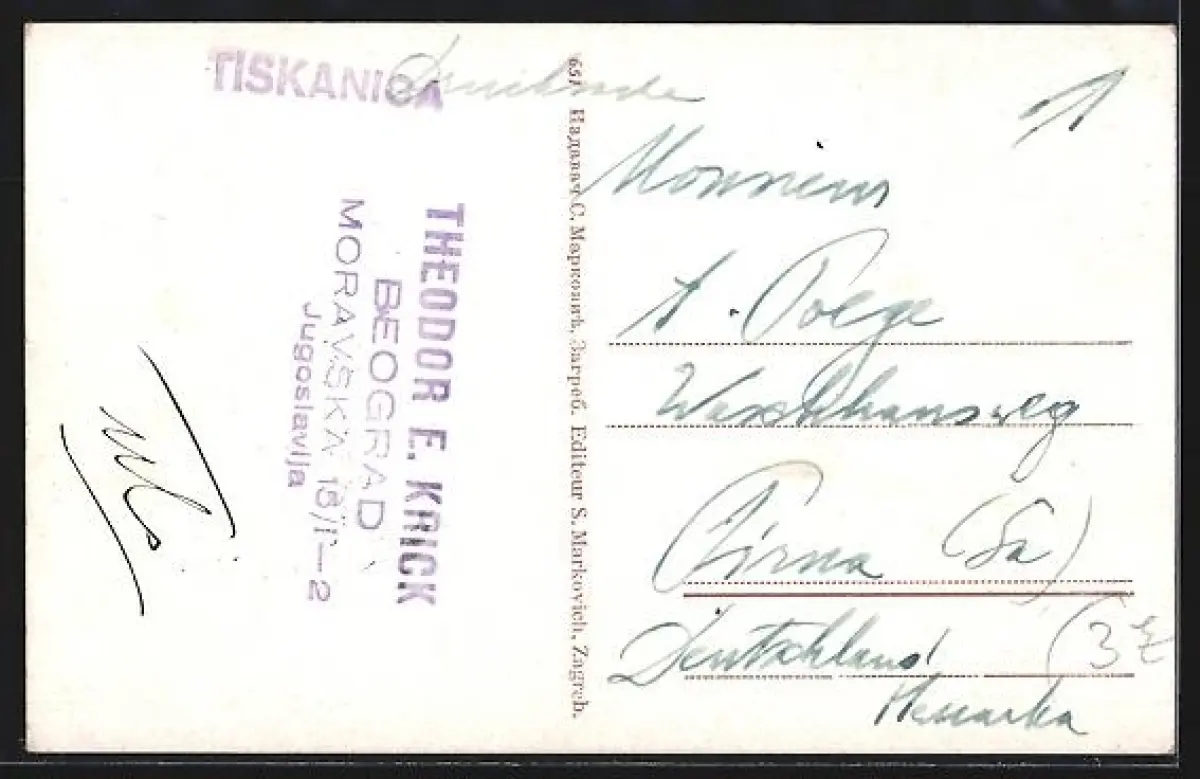 TISKANICA
THEODOR E. KRICK
BEOGRAD
MORAVSKA 13/I–2
Jugoslavija
651 Издавач С. Марковић, Загреб. Editeur S. Markovich, Zagreb.
Monsieur
A. Poege
Waschhausweg
Pirna (Sa)
Deutschland
Nemačka